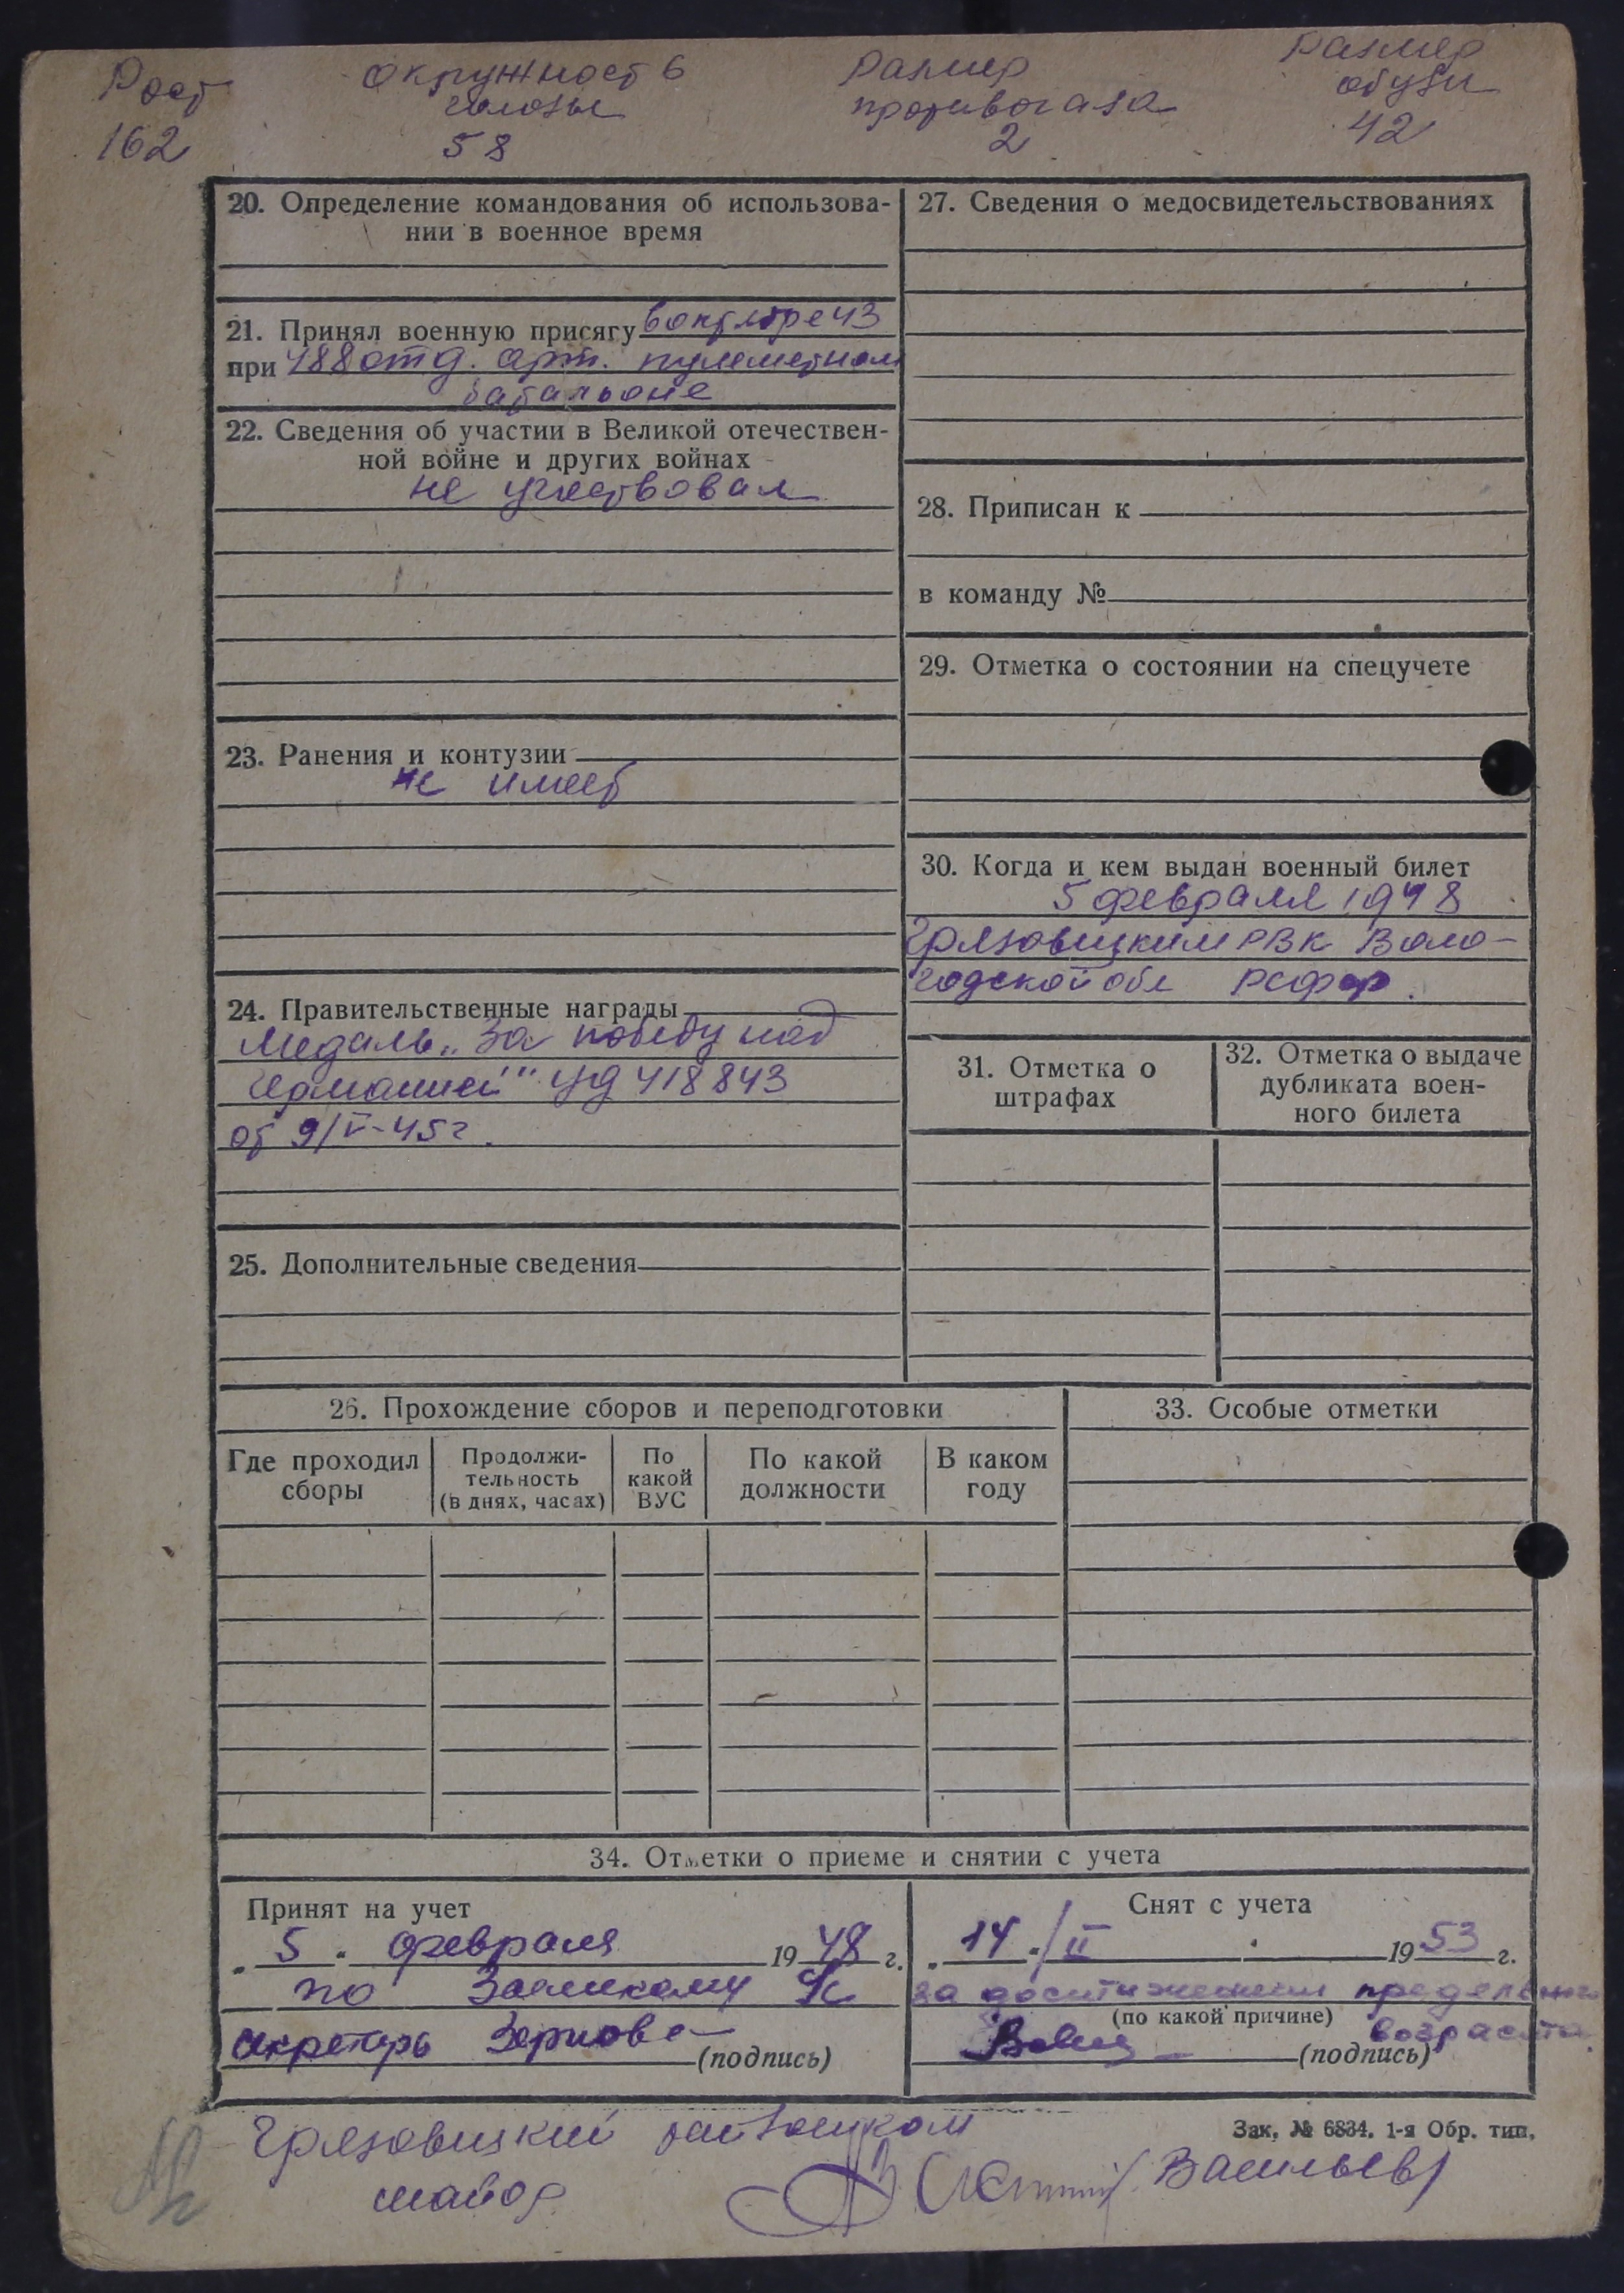 Рост
162
Окружность
головы
58
Размер
противогаза
2
Размер
обуви
42
20. Определение командования об использова-
нии в военное время
21. Принял военную присягу в октябре 43
при 488 отд. арт. пулеметном
батальоне
22. Сведения об участии в Великой отечествен-
ной войне и других войнах
не участвовал
23. Ранения и контузии
не имеет
24. Правительственные награды
Медаль „За победу над
Германией" 418843
от 9/V-45г.
25. Дополнительные сведения
27. Сведения о медосвидетельствованиях
28. Приписан к
в команду №
29. Отметка о состоянии на спецучете
30. Когда и кем выдан военный билет
5 февраля 1948
Грязовецким РВК Воло-
годской обл РСФСР.
31. Отметка о
штрафах
32. Отметка о выдаче
дубликата воен-
ного билета
26. Прохождение сборов и переподготовки
Где проходил
сборы
Продолжи-
тельность
(в днях, часах)
По
какой
ВУС
По какой
должности
В каком
году
33. Особые отметки
34. Отметки о приеме и снятии с учета
Принят на учет
„5" февраля 1948 г.
по с/с
секретарь
(подпись)
Снят с учета
„14"/II 1953 г.
за достижением предельного
(по какой причине) возраста.
(подпись)
Зак. № 6834. 1-я Обр. тип.
Грязовецкий райвоенком
майор Васильев